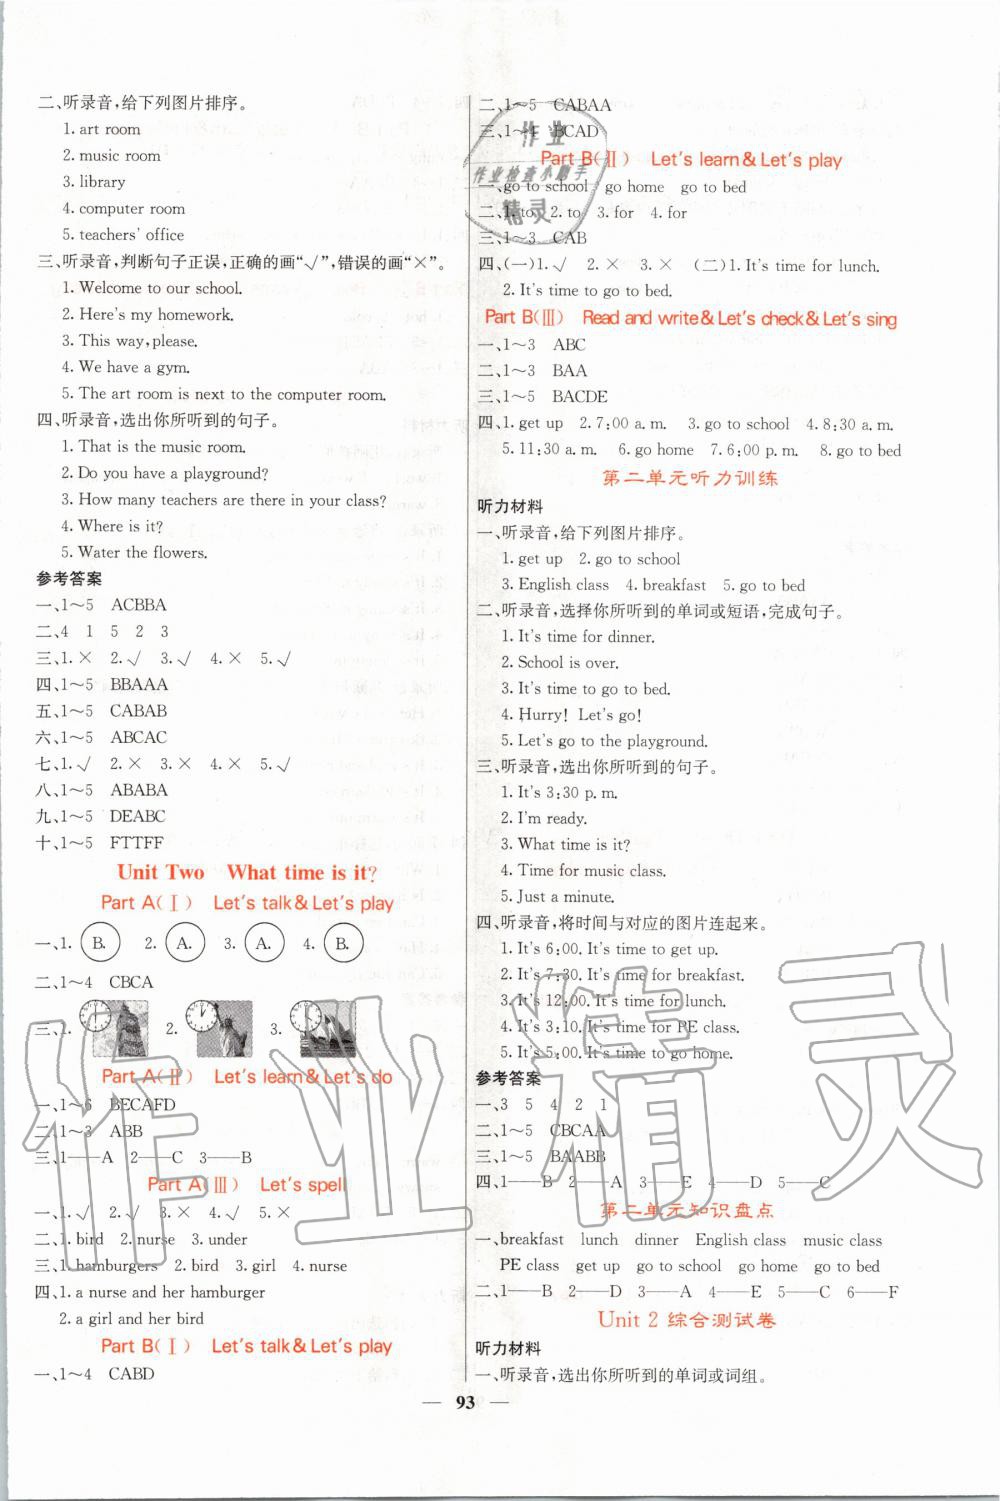 二、听录音,给下列图片排序。
1. art room
2. music room
3. library
4. computer room
5. teachers' office
三、听录音,判断句子正误,正确的画“√”,错误的画“×”。
1. Welcome to our school.
2. Here's my homework.
3. This way, please.
4. We have a gym.
5. The art room is next to the computer room.
四、听录音,选出你所听到的句子。
1. That is the music room.
2. Do you have a playground?
3. How many teachers are there in your class?
4. Where is it?
5. Water the flowers.
参考答案
一、1～5 ACBBA
二、4 1 5 2 3
三、1. × 2. √ 3. √ 4. × 5. √
四、1～5 BBAAA
五、1～5 CABAB
六、1～5 ABCAC
七、1. √ 2. × 3. × 4. × 5. √
八、1～5 ABABA
九、1～5 DEABC
十、1～5 FTTFF
Unit Two What time is it?
Part A(Ⅰ) Let's talk & Let's play
一、1. B. 2. A. 3. A. 4. B.
二、1～4 CBCA
三、1. 2. 3.
Part A(Ⅱ) Let's learn & Let's do
一、1～6 BECAFD
二、1～3 ABB
三、1——A 2——C 3——B
Part A(Ⅲ) Let's spell
一、1. √ 2. √ 3. × 4. √ 5. ×
二、1. bird 2. nurse 3. under
三、1. hamburgers 2. bird 3. girl 4. nurse
四、1. a nurse and her hamburger
2. a girl and her bird
Part B(Ⅰ) Let's talk & Let's play
一、1～4 CABD
二、1～5 CABAA
三、1～4 BCAD
Part B(Ⅱ) Let's learn & Let's play
一、go to school go home go to bed
二、1. to 2. to 3. for 4. for
三、1～3 CAB
四、(一)1. √ 2. × 3. × (二)1. It's time for lunch.
2. It's time to go to bed.
Part B(Ⅲ) Read and write & Let's check & Let's sing
一、1～3 ABC
二、1～3 BAA
三、1～5 BACDE
四、1. get up 2. 7:00 a. m. 3. go to school 4. 8:30 a. m.
5. 11:30 a. m. 6. go home 7. 6:00 p. m. 8. go to bed
第二单元听力训练
听力材料
一、听录音,给下列图片排序。
1. get up 2. go to school
3. English class 4. breakfast 5. go to bed
二、听录音,选择你所听到的单词或短语,完成句子。
1. It's time for dinner.
2. School is over.
3. It's time to go to bed.
4. Hurry! Let's go!
5. Let's go to the playground.
三、听录音,选出你所听到的句子。
1. It's 3:30 p. m.
2. I'm ready.
3. What time is it?
4. Time for music class.
5. Just a minute.
四、听录音,将时间与对应的图片连起来。
1. It's 6:00. It's time to get up.
2. It's 7:30. It's time for breakfast.
3. It's 12:00. It's time for lunch.
4. It's 3:10. It's time for PE class.
5. It's 5:00. It's time to go home.
参考答案
一、3 5 4 2 1
二、1～5 CBCAA
三、1～5 BAABB
四、1——B 2——A 3——E 4——D 5——C
第二单元知识盘点
一、breakfast lunch dinner English class music class
PE class get up go to school go home go to bed
二、1——B 2——D 3——A 4——E 5——C 6——F
Unit 2 综合测试卷
听力材料
一、听录音,选出你所听到的单词或词组。
— 93 —
作业
作业检查小助手
精灵
作业精灵